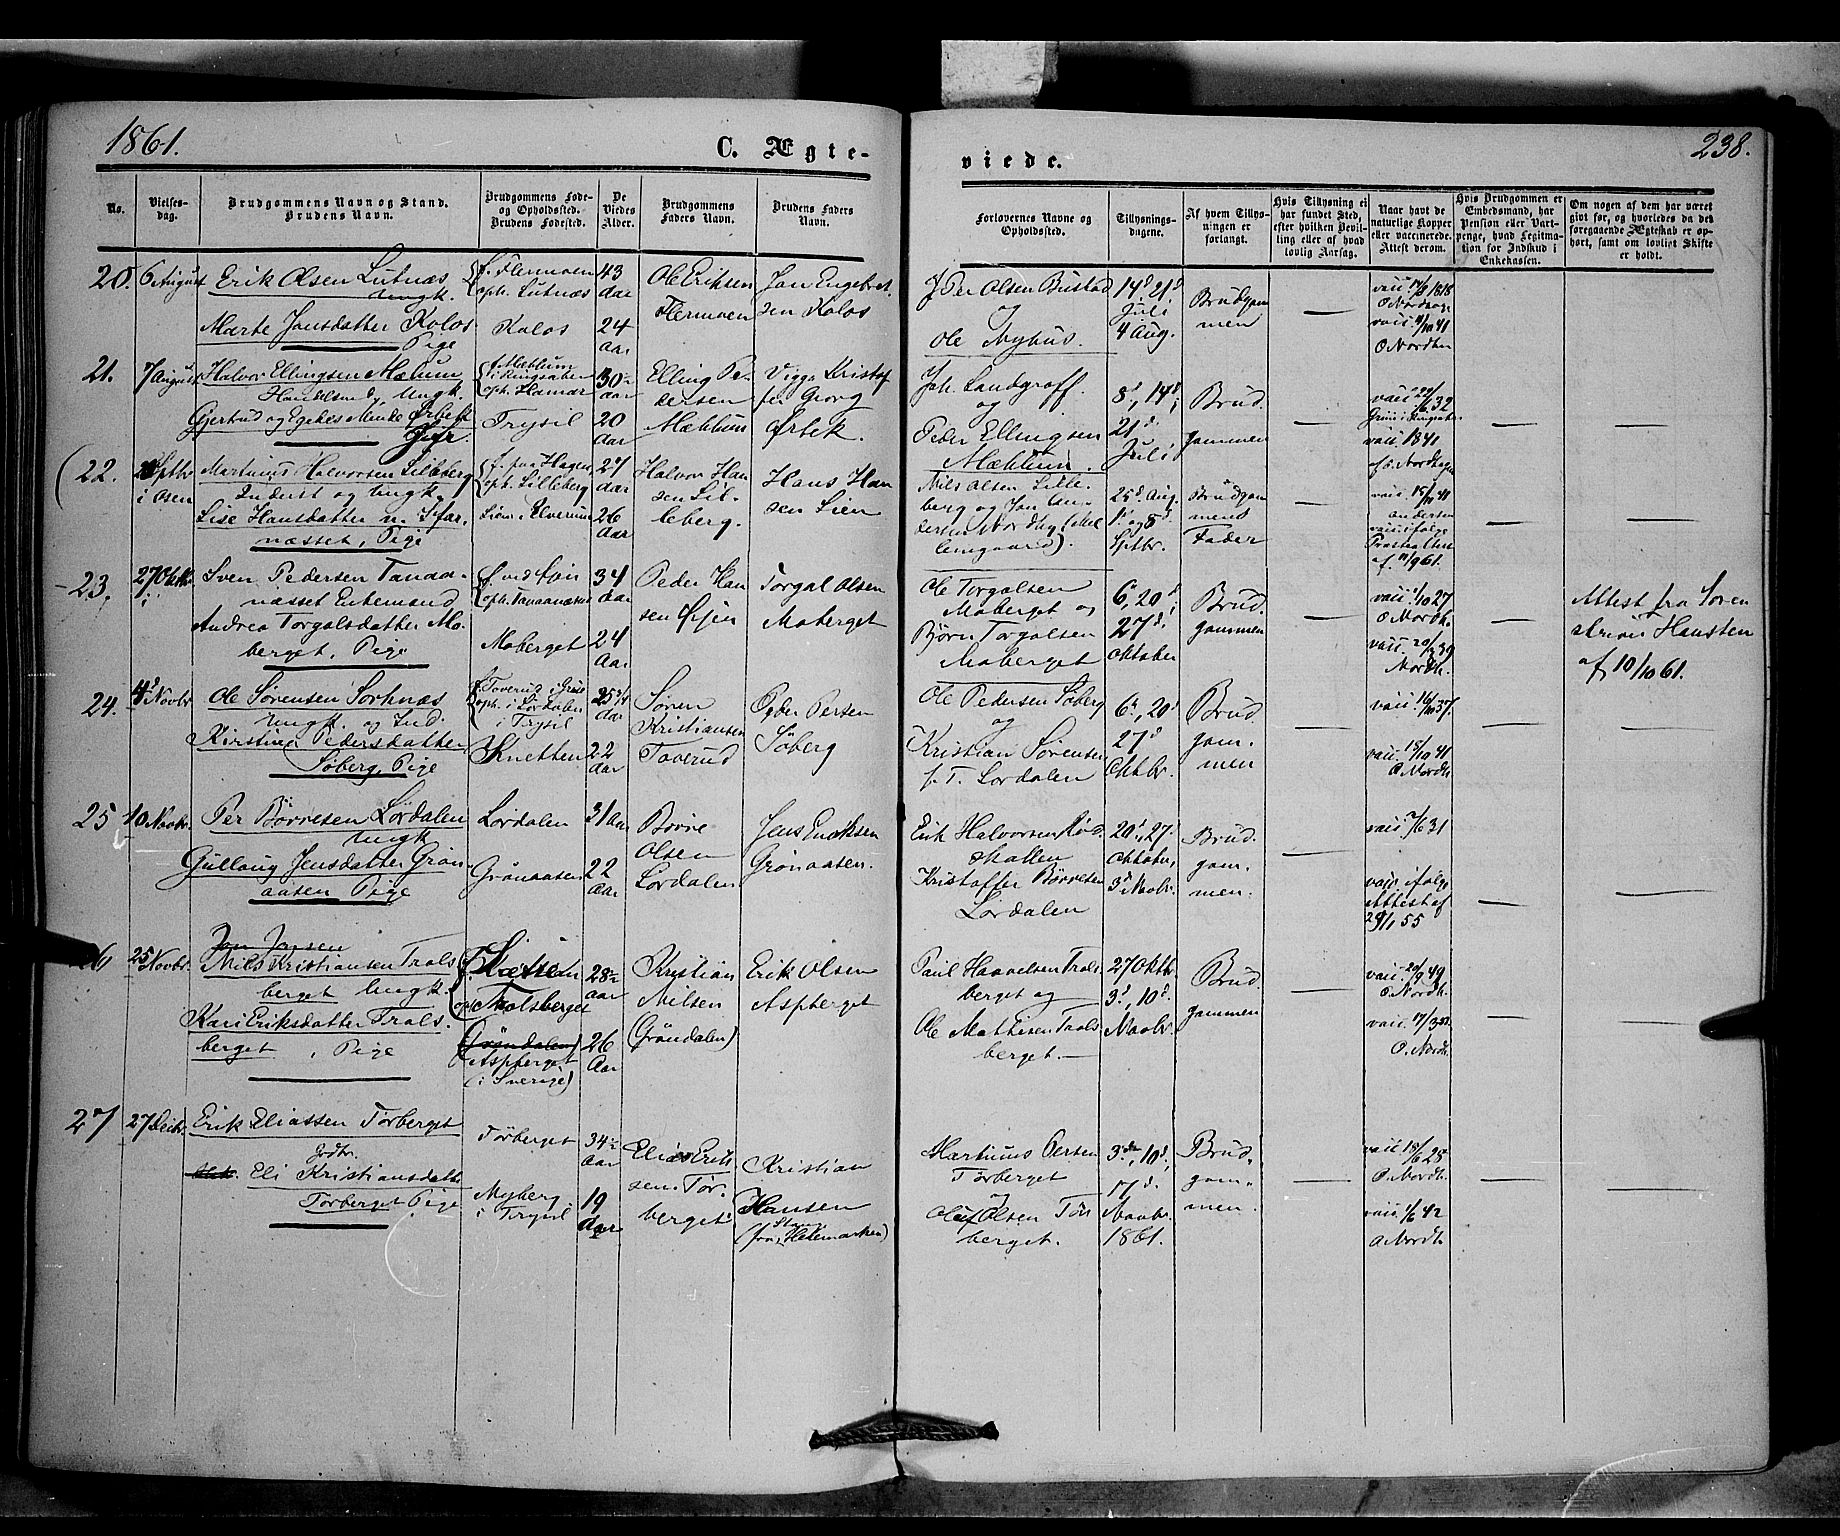 1861.
C. Ægte-
viede.
238.
No.
Vielses-
dag.
Brudgommens Navn og Stand.
Brudens Navn.
Brudgommens Føde-
og Opholdssted.
Brudens Fødested.
De
Viedes
Alder.
Brudgommens
Faders Navn.
Brudens Faders
Navn.
Forlovernes Navne og
Opholdssted.
Tillysnings-
dagene.
Af hvem Tillys-
ningen er
forlangt.
Hvis Tillysning ei
har fundet Sted,
efter hvilken Bevil-
ling eller af hvad
lovlig Aarsag.
Naar havt de
naturlige Kopper
eller vaccinerede.
Attest derom.
Hvis Brudgommen er
Embedsmand, har
Pension eller Vart-
penge, hvad Legitima-
tion for Indskud i
Enkekassen.
Om nogen af dem har været
gift før, og hvorledes da det
foregaaende Ægteskab er op-
hørt, samt om lovligt Skifte
er holdt.
20. 6 August
Erik Olsen Lutnæs
Ungk.
Marte Jonsdatter Kolos
Pige
f. Flermoen
oph. Lutnæs
Kolos
43
Aar
24
Aar
Ole Eriksen
Flermoen
Jon Engebret
sen Kolos
Per Olsen Bustad
og
Ole Nyhus.
14d 21d
Juli
4 Aug.
Brudgom
men
vaii 1818
O Nordhagen
vaii 41
O Nordha
21. 7 August
Halvor Ellingsen Mælum
Handelsmd, Ungk.
Gjertrud og Egedes Minde Ørbek
f. Mæhlum
i Ringsaker
oph. Hamar
Trysil
30
Aar
20
Aar
Elling Pe-
dersen
Mæhlum
Viggo Kristof
fer Georg
Ørbek.
Joh. Landgraff
og
Peder Ellingsen
Mæhlum.
8d, 14d,
21d
Juli
Brud
gommen
vaii 22/6 32
vaii 1841
af O. Nordhagen
22. Sptbr
i Osen
Martinus Halvorsen Lilleberg
Inderst og Ungk.
Lise Hansdatter
næsset, Pige
f. paa Hagen
oph. Lilleberg
Lien i Elverum
27
Aar
26
Aar
Halvor Han
sen Lil-
leberg.
Hans Han
sen Lien
Nils Olsen Lille-
berg og Jon An-
dersen Nordby
25d Aug.
1d og 8d
Sptbr.
Brudgom
mens
Fader
vaii 15/10 41
Andersen
vaii ifølge
Præsteattest
af 61.
23. 27 Oktbr
Sven Pedersen Tanaa-
næsset Enkemand
Andrea Torgalsdatter Mo-
berget, Pige
oph. Tanaanæsset
Moberget
34
Aar
24
Aar
Peder Han
sen Øien
Torgal Olsen
Moberget
Ole Torgalsen
Moberget og
Bjørn Torgalsen
Moberget
6, 20d,
27d
Oktober
Brud
gommen
vaii 1/10 27
O Nordh.
vaii 39
Nordh.
Attest fra Soren
skriver Hansten
af 10/10 61.
24. 4d Novbr
Ole Sørensen Sorknæs
Ungk. og Ind.
Kirstine Pedersdatter
Søberg, Pige
f. Toverud i Grue
oph. i Lørdalen
i Trysil
Knetten
25 3/4
Aar
22
Aar
Søren
Kristiansen
Toverud
Peder Persen
Søberg
Ole Pedersen Søberg
og
Kristian Sørensen
f. T. Lørdalen
6d, 20d
27d
Oktbr.
Brud
gom-
men
vaii 16/10 37.
vaii 15/10 41
O. Nordh
25 10 Novbr.
Per Børresen Lørdalen
Ungk
Gullaug Jensdatter Grøn-
aasen Pige
Lørdalen
Grønaasen
31 Aar
22
Aar
Børre
Olsen
Lørdalen
Jens Eriksen
Grønaasen.
Erik Halvorsen Rød
skallen
Kristoffer Børresen
Lørdalen
20d, 27
Oktober,
3d Novbr.
Brud.
gom-
men.
vaii 7/6 31
vaii. ifølge
Attest af
29/1 55
26 25 Novbr.
Jon Jonsen
Nils Kristiansen Trols
berget Ungk.
Kari Eriksdatter Trols-
berget, Pige
Trolsberget
Grøndalen
Aspberget
(i Sverige)
28
Aar
26
Aar
Kristian
Nilsen
(Grøndalen)
Erik Olsen
Aspberget
Paul Haavelsen Trols
berget og
Ole Mathisen Trols
berget.
27 Oktbr
3d, 10d.
Novbr.
Brud
gommen
vaii 20/9 49
O Nordh.
vaii. 17/3
O. Nordh.
27 27 Decbr
Erik Eliassen Tørberget
Eli Kristiansdatter
Tørberget Pige
Tørberget
Nyberg
i Trysil
34
Aar
19
Aar
Elias Erik
sen Tør-
berget
Kristian
Hansen
(fra Hedemarken)
Martinus Persen
Tørberget
og
Oluf Olsen Tør
berget.
3die, 10d,
17d.
Novbr.
1861.
Brud,
gom-
men.
vaii 18/6 28
O. Nordh.
vaii 1/6 42
O Nordh